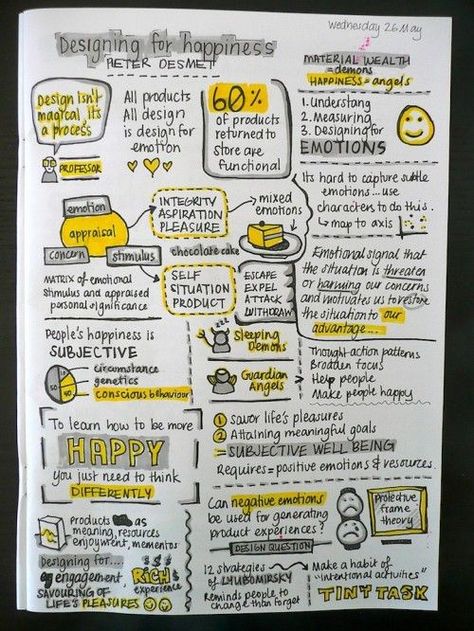 Wednesday 26 May
Designing for happiness
PETER DESMET
Design isn't
magical, it's
a process
PROFESSOR
All products
All design
is design for
emotion
60%
of products
returned to
store are
functional
MATERIAL WEALTH
= demons
HAPPINESS = angels
1. Understang
2. Measuring
3. Designing for
EMOTIONS
emotion
appraisal
concern
stimulus
INTEGRITY
ASPIRATION
PLEASURE
mixed
emotions
chocolate cake
MATRIX of emotional
stimulus and appraised
personal significance
SELF
SITUATION
PRODUCT
ESCAPE
EXPEL
ATTACK
WITHDRAW
Its hard to capture subtle
emotions... use
characters to do this.
↳ map to axis
Emotional signal that
the situation is threaten
or harming our concerns
and motivates us to restore
the situation to our
advantage...
People's happiness is
SUBJECTIVE
circumstance
genetics
conscious behaviour
50
10
zzz
Sleeping
Demons
Guardian
Angels
Thought-action patterns
Brodden focus
Help people
Make people happy
To learn how to be more
HAPPY
You just need to think
DIFFERENTLY
1 savor life's pleasures
2 Attaining meaningful goals
= SUBJECTIVE WELL BEING
Requires = positive emotions & resources.
products as
meaning, resources
enjoyment, mementos
Designing for....
engagement
SAVOURING OF
LIFE'S PLEASURES
$ $ $
RICH
experience
Can negative emotions
be used for generating
product experiences?
DESIGN QUESTION
Protective
frame
theory
12 strategies
of LYUBOMIRSKY
Reminds people to
change than forget
Make a habit of
"intentional activities"
TINY TASK